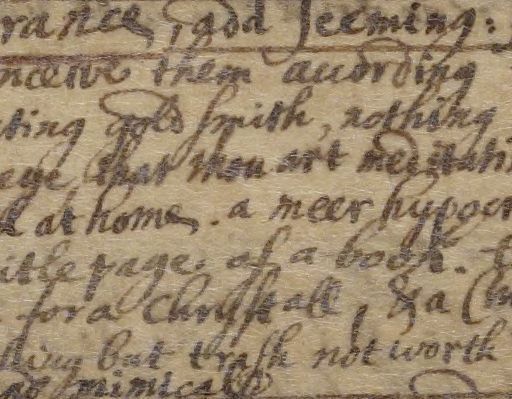 rance, god seeming:
nceive them according
ting gold smith, nothing
eye that thou art meditati
d at home. a meer hypocr
itle page. of a book.
for a Christall, & a
thing but trash not worth
mimicall